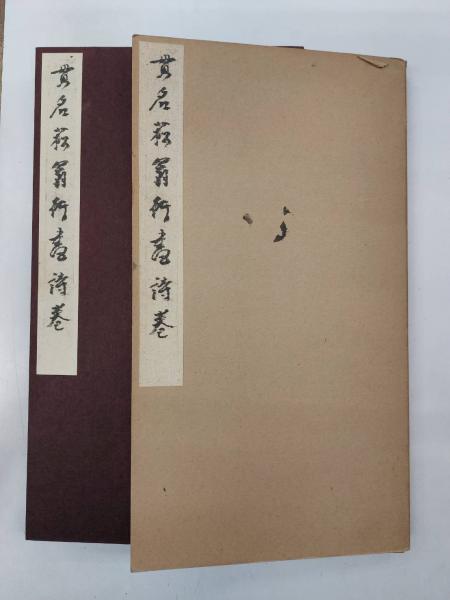 貫名菘翁行書詩巻
貫名菘翁行書詩巻